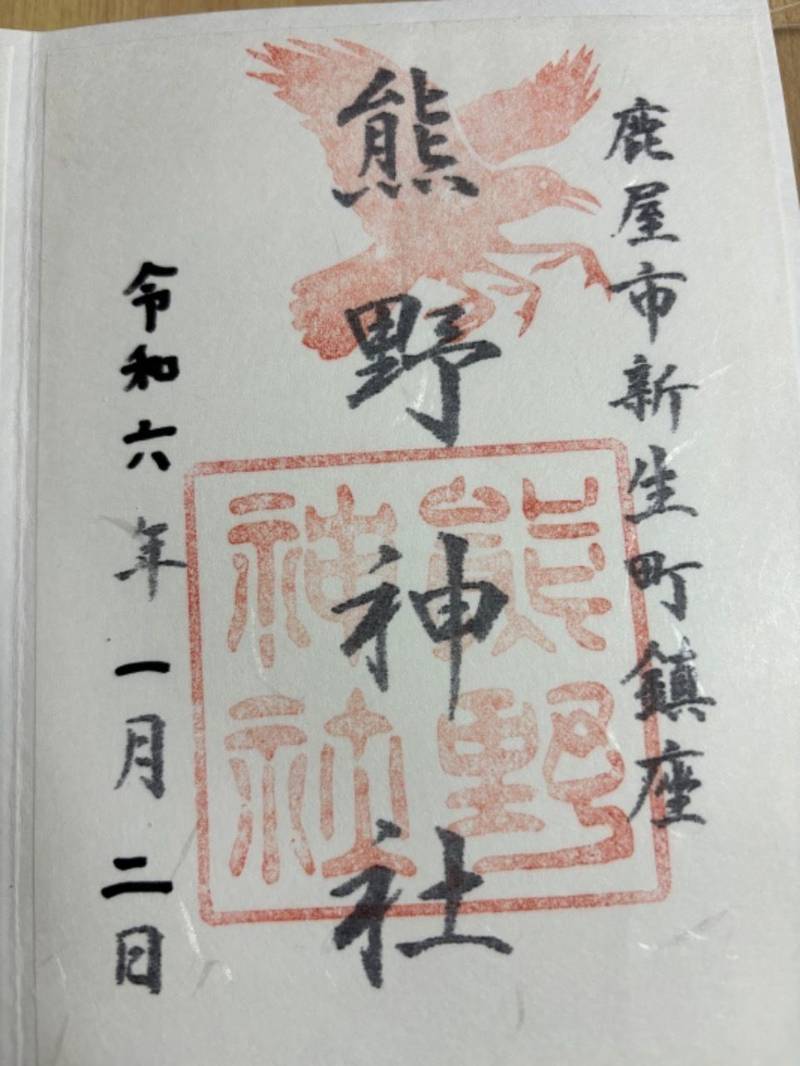 鹿屋市新生町鎮座
熊野神社
熊野神社
令和六年一月二日